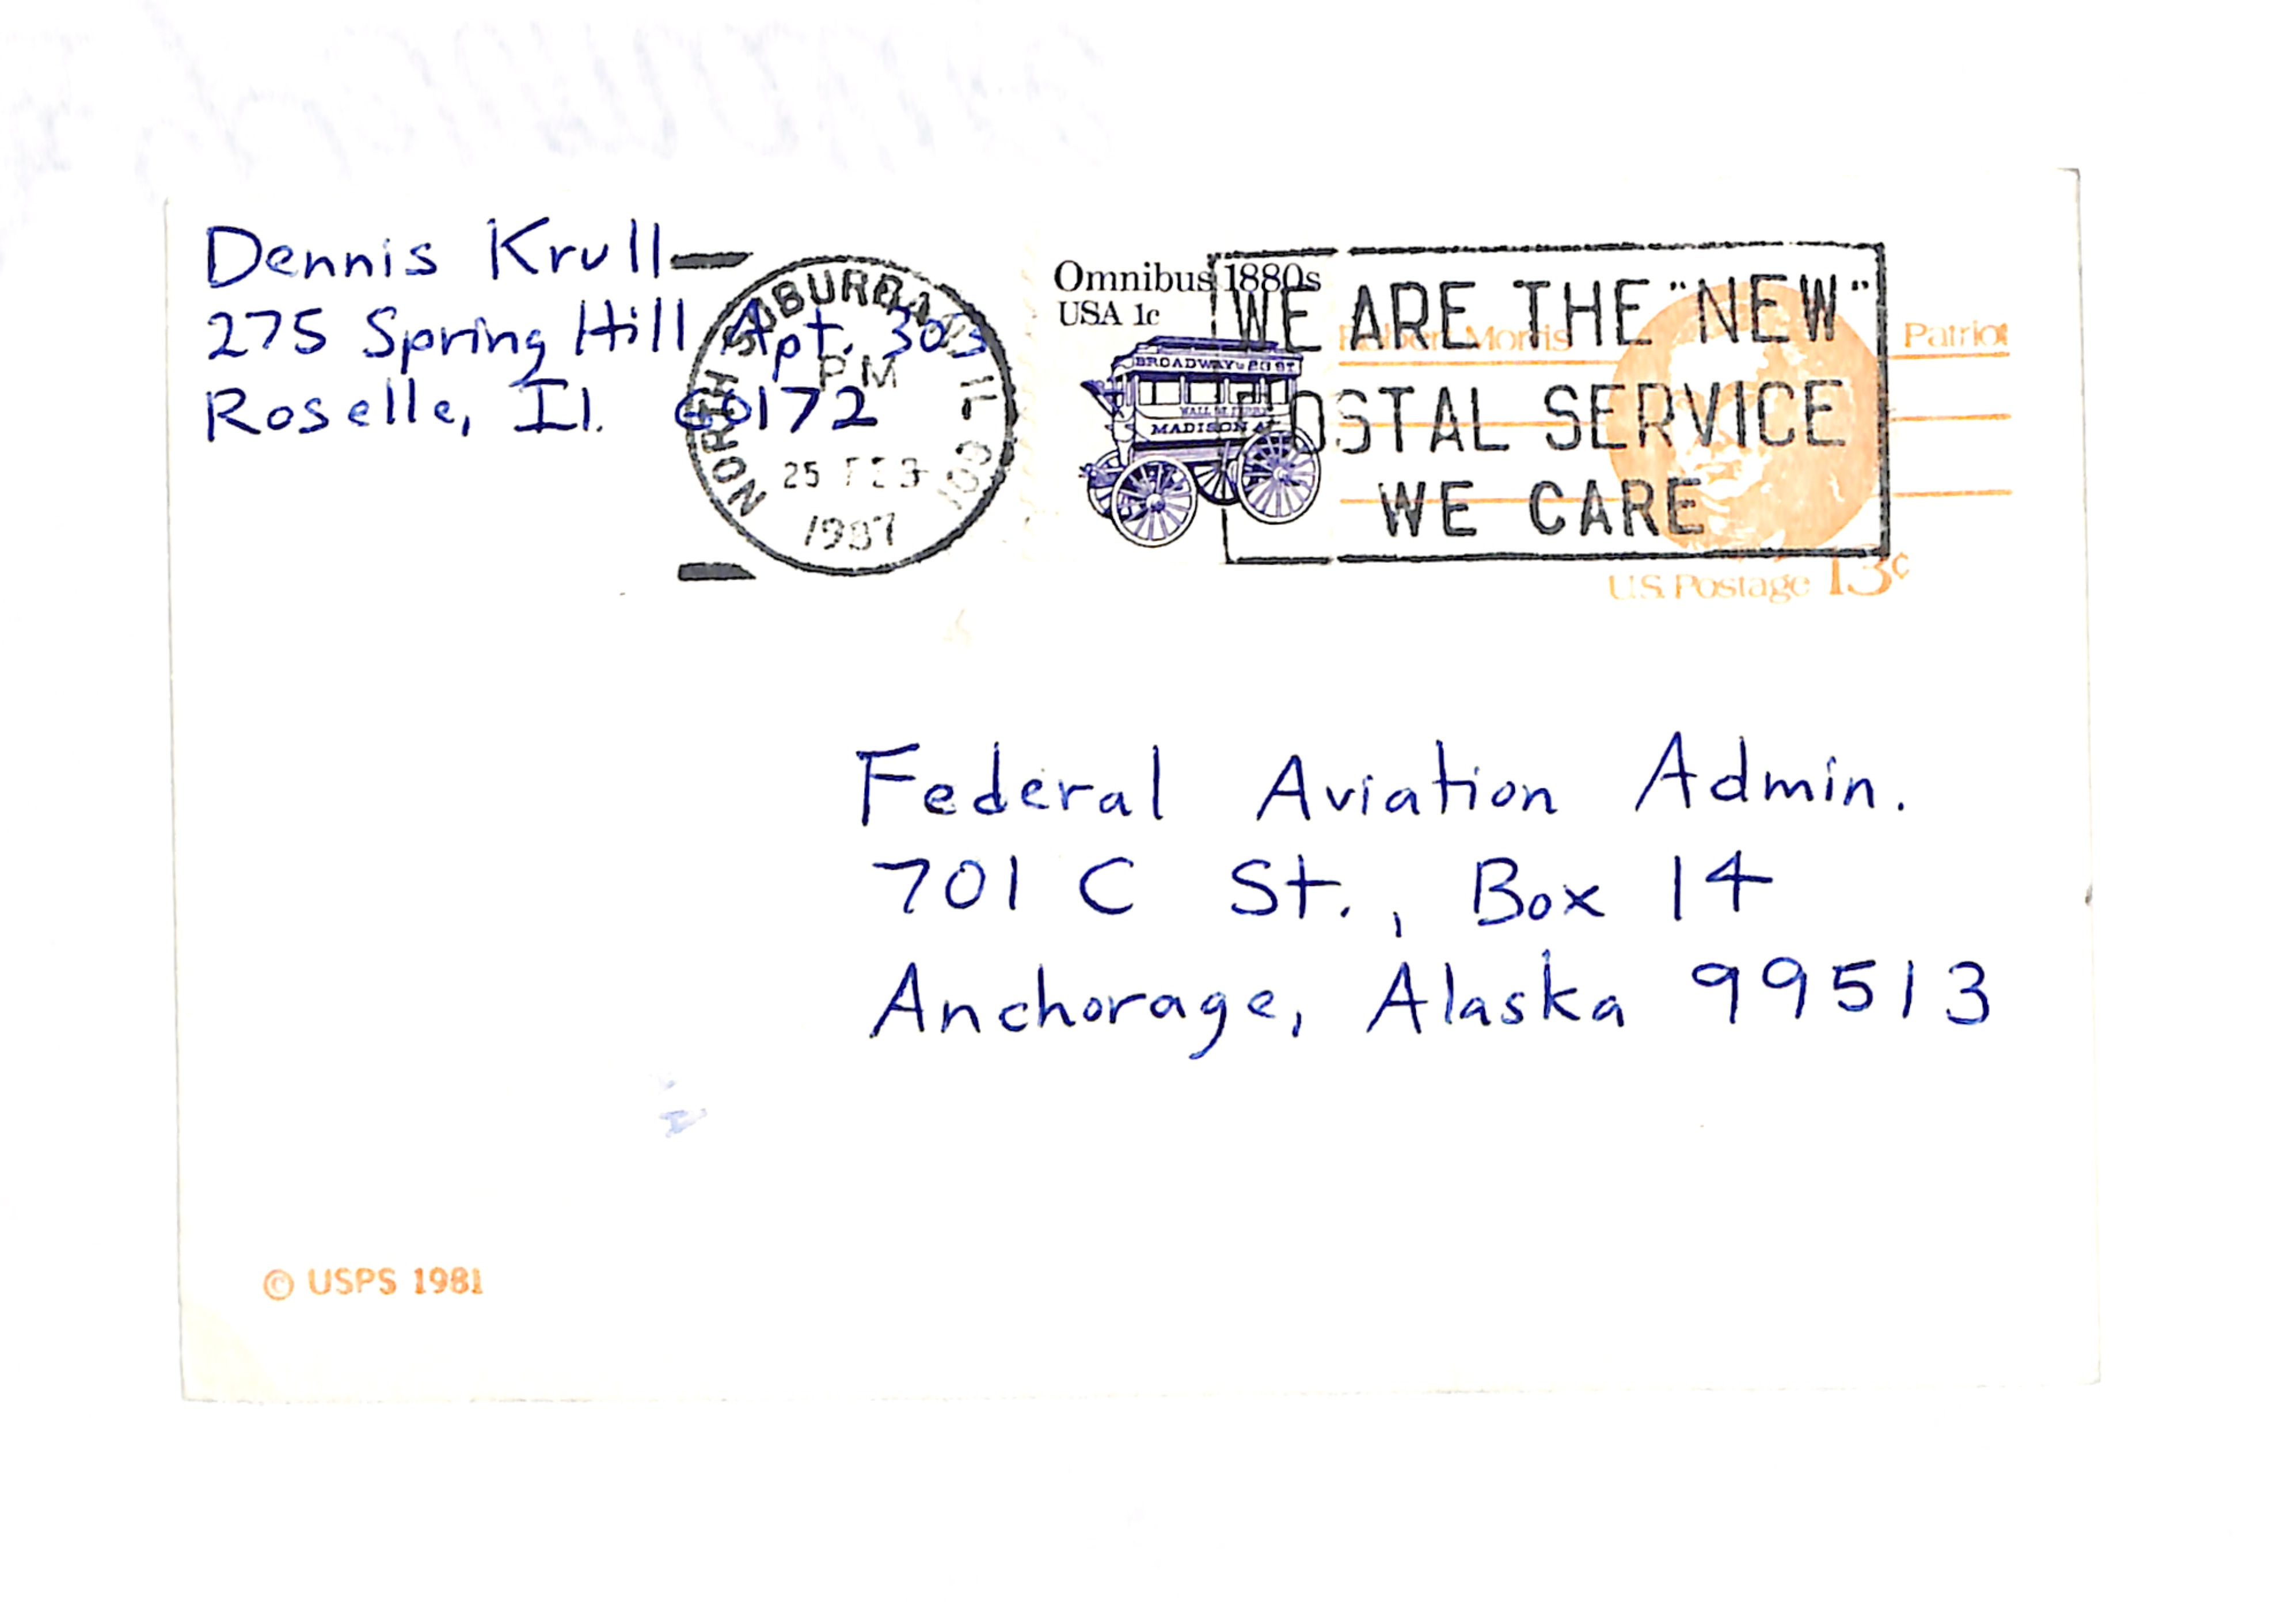 Dennis Krull
275 Spring Hill Apt. 303
Roselle, Il. 60172
NORTH SUBURBAN IL 600
PM
25 FEB
1987
Omnibus 1880s
USA 1c
BROADWAY & 23 ST.
MADISON AV
WE ARE THE "NEW"
POSTAL SERVICE
WE CARE
Robert Morris
Patriot
U.S. Postage 13¢
Federal Aviation Admin.
701 C St., Box 14
Anchorage, Alaska 99513
© USPS 1981